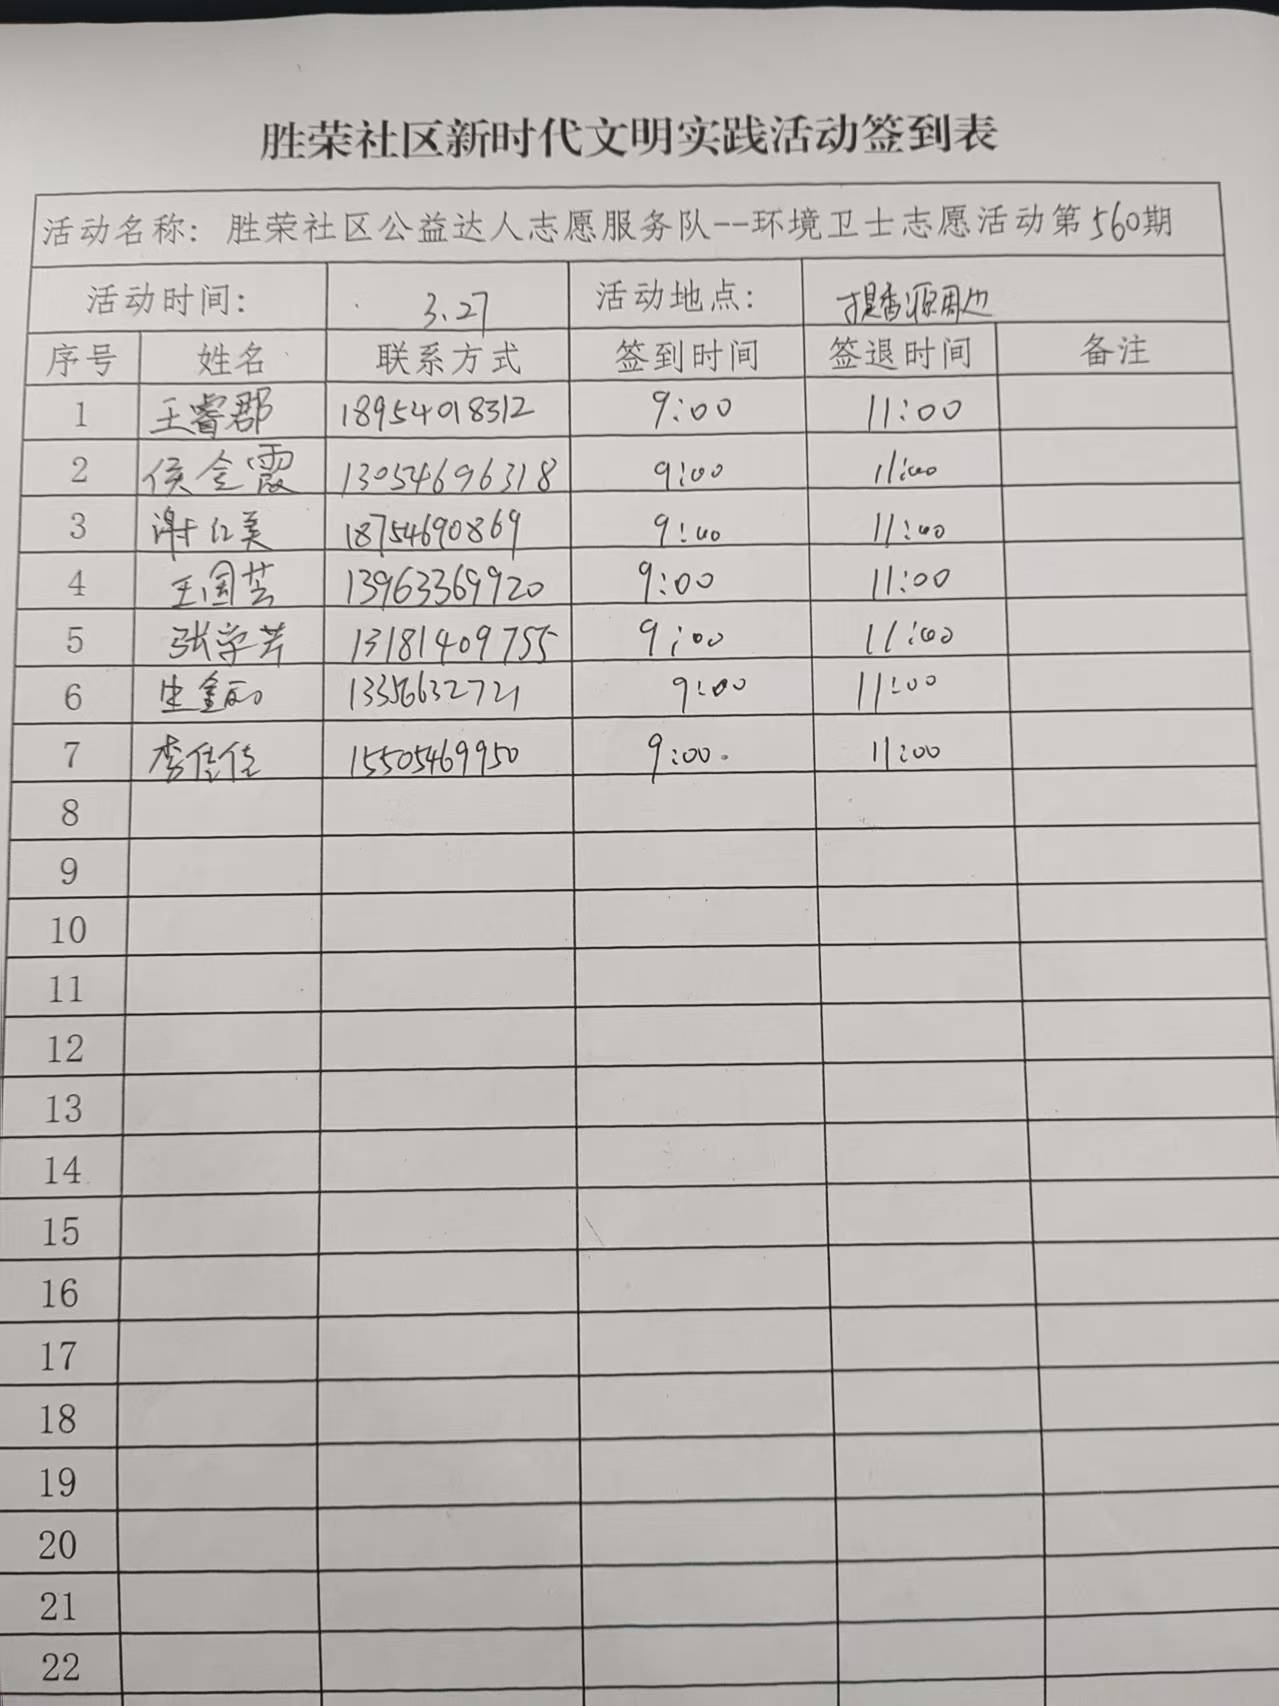 胜荣社区新时代文明实践活动签到表
活动名称：胜荣社区公益达人志愿服务队--环境卫士志愿活动第560期
活动时间： 3.27 活动地点： 提香源周边
序号 姓名 联系方式 签到时间 签退时间 备注
1 王睿郡 18954018312 9:00 11:00
2 侯全霞 13054696318 9:00 11:00
3 谢红美 18754690869 9:00 11:00
4 王国芸 13963369920 9:00 11:00
5 张学芹 13181409755 9:00 11:00
6 13356632721 9:00 11:00
7 李佳佳 15505469950 9:00. 11:00
8
9
10
11
12
13
14
15
16
17
18
19
20
21
22